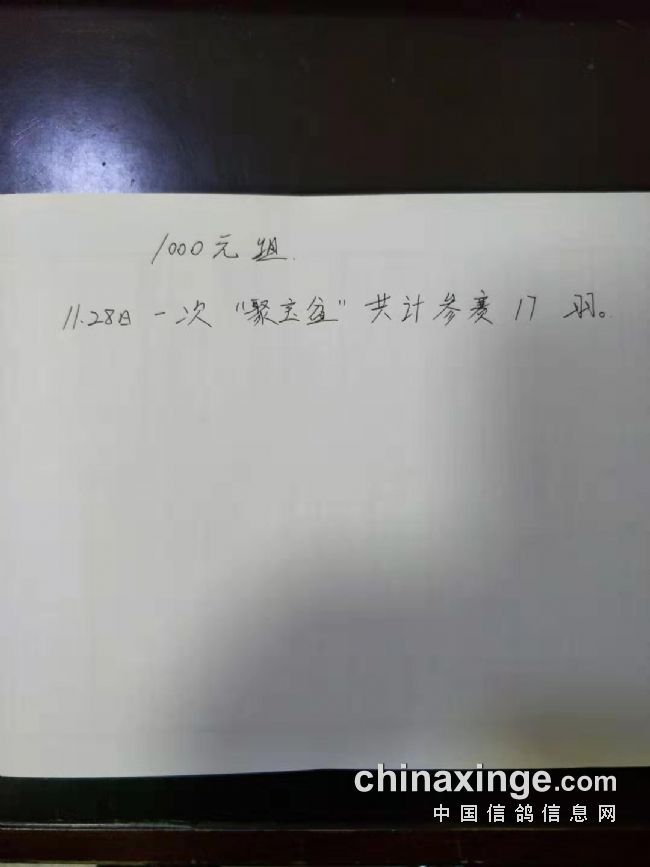 1000元组.
11.28日一次"聚宝盆"共计参赛17羽。
chinaxinge.com
中国信鸽信息网